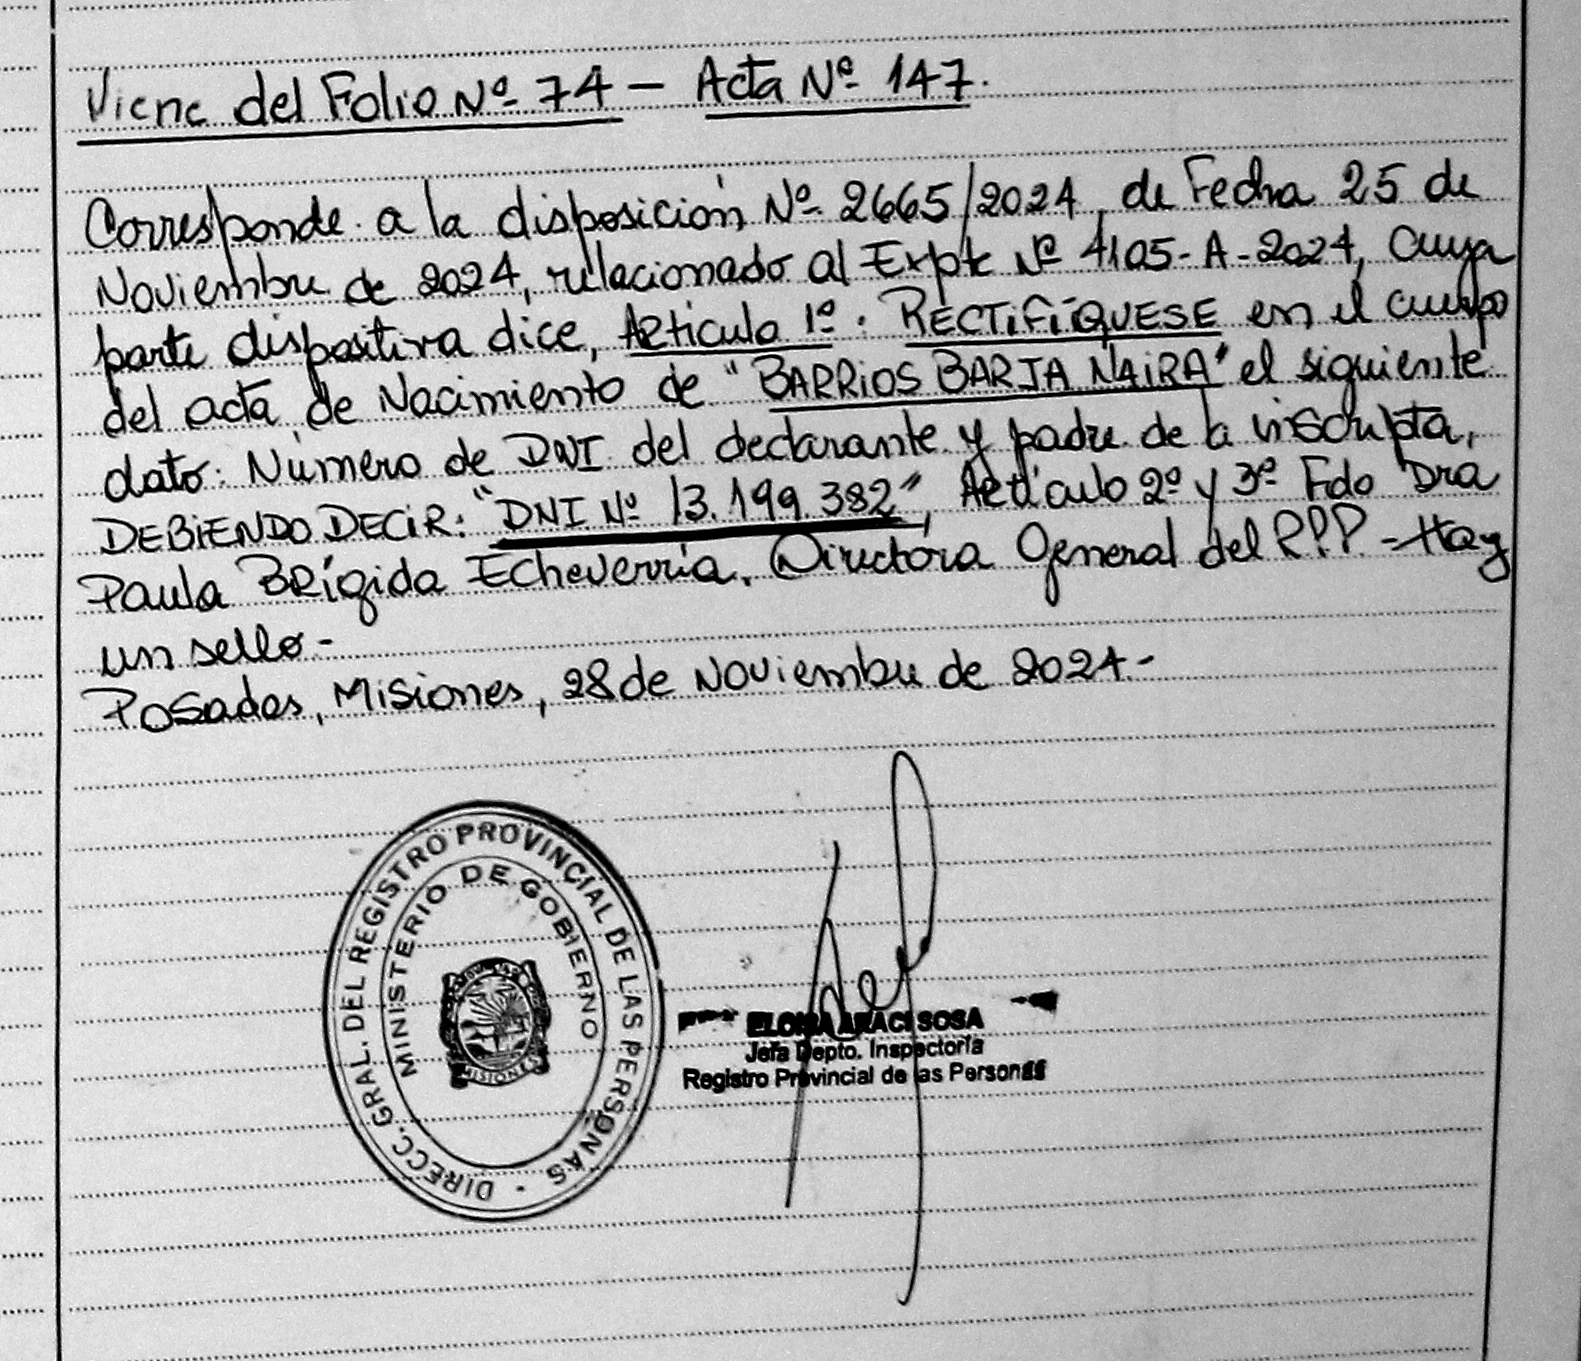 Viene del Folio Nº 74 - Acta Nº 147.
Corresponde a la disposición Nº 2665/2024, de Fecha 25 de
Noviembre de 2024, relacionado al Expte Nº 4105-A-2024, Cuya
parte dispositiva dice, Articulo 1º. RECTIFÍQUESE en el cuerpo
del acta de Nacimiento de "BARRIOS BARJA NAIRA" el siguiente
dato: Número de DNI del declarante y padre de la inscripta,
DEBIENDO DECIR: "DNI Nº 13.199.382", Artículo 2º y 3º Fdo Dra
Paula Brígida Echeverría. Directora General del R.P.P - Hay
un sello -
Posadas, Misiones, 28 de Noviembre de 2024.-
DIRECC. GRAL. DEL REGISTRO PROVINCIAL DE LAS PERSONAS -
MINISTERIO DE GOBIERNO
MISIONES
ARACI SOSA
Jefa Depto. Inspectoría
Registro Provincial de las Personas